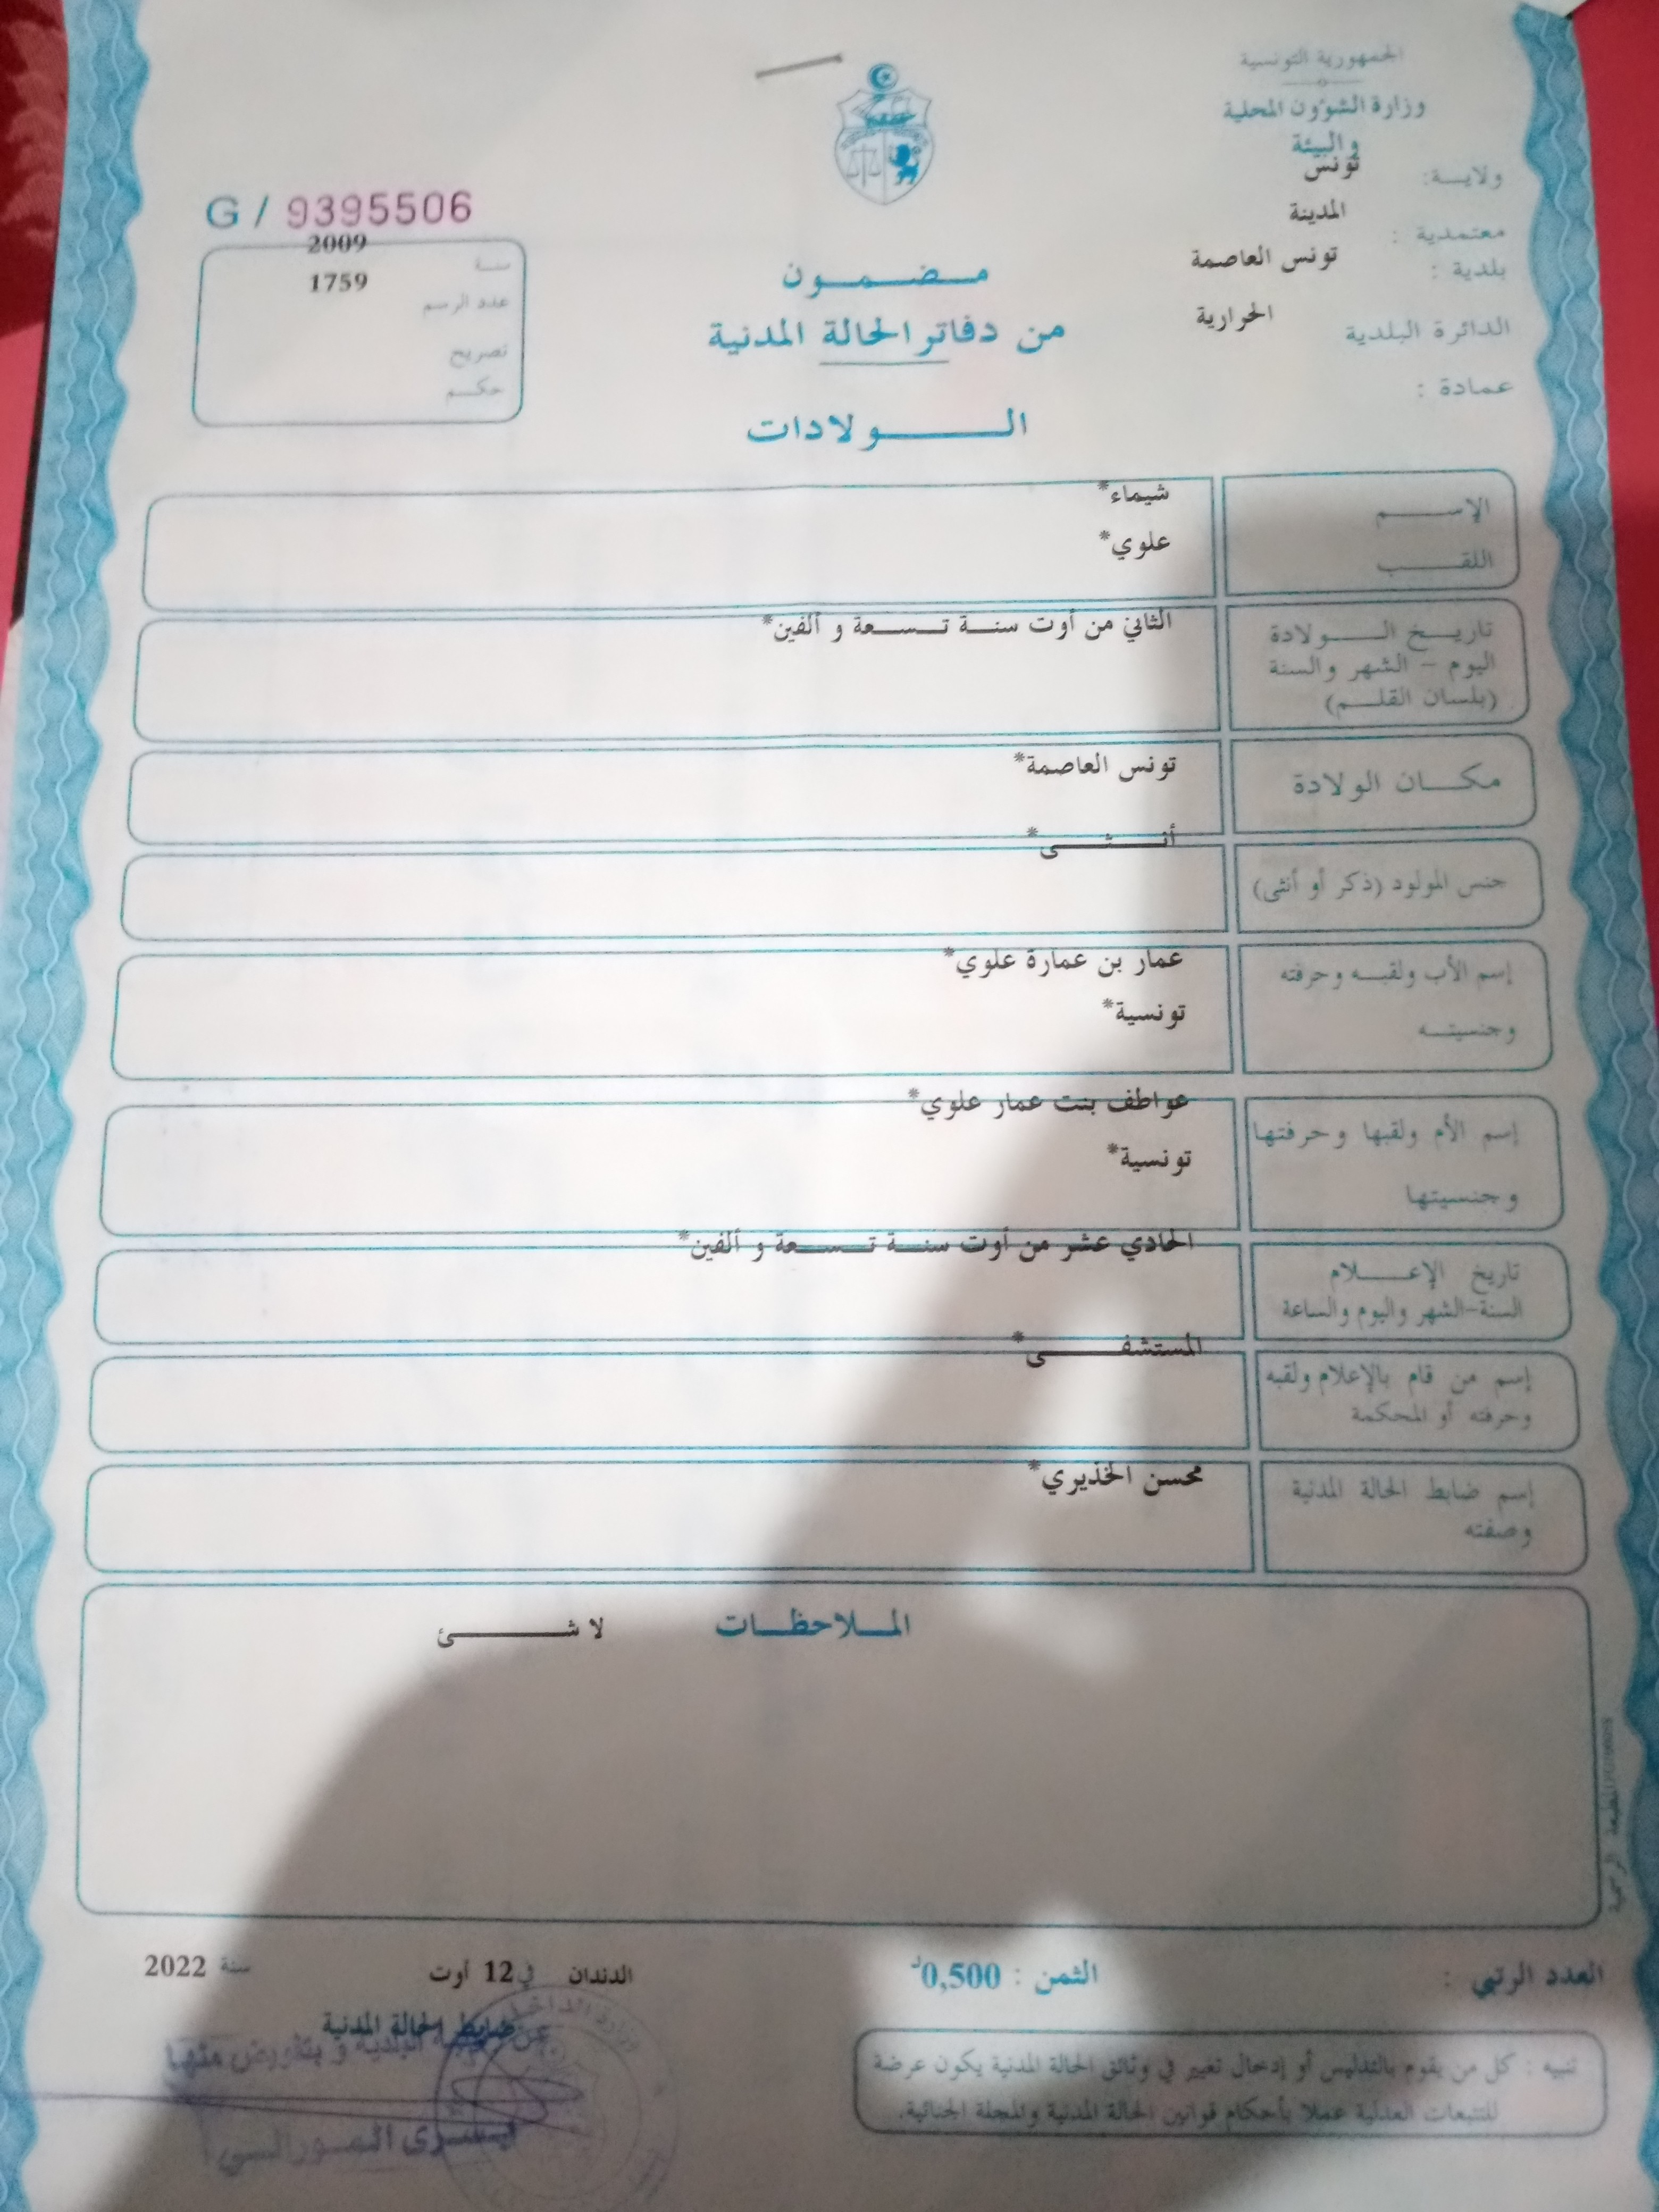 الجمهورية التونسية
وزارة الشؤون المحلية
والبيئة
ولايـة: تونس
معتمدية : المدينة
بلدية : تونس العاصمة
الدائرة البلدية الحرارية
عمادة :
G / 9395506
سنة 2009
عدد الرسم 1759
تصريح
حكم
مضمون
من دفاتر الحالة المدنية
الولادات
الإسم شيماء*
اللقب علوي*
تاريخ الولادة الثاني من أوت سنة تسعة و ألفين*
اليوم - الشهر والسنة
(بلسان القلم)
مكان الولادة تونس العاصمة*
جنس المولود (ذكر أو أنثى) أنثى*
إسم الأب ولقبه وحرفته عمار بن عمارة علوي*
وجنسيته تونسية*
إسم الأم ولقبها وحرفتها عواطف بنت عمار علوي*
وجنسيتها تونسية*
تاريخ الإعلام الحادي عشر من أوت سنة تسعة و ألفين*
السنة-الشهر واليوم والساعة
إسم من قام بالإعلام ولقبه المستشفى*
وحرفته أو المحكمة
إسم ضابط الحالة المدنية محسن الخذيري*
وصفته
الملاحظات لا شئ
العدد الرتبي :
الثمن : 0,500د
الدندان في 12 أوت سنة 2022
ضابط الحالة المدنية
تنبيه : كل من يقوم بالتدليس أو إدخال تغيير في وثائق الحالة المدنية يكون عرضة
للتتبعات العدلية عملا بأحكام قوانين الحالة المدنية والمجلة الجنائية.